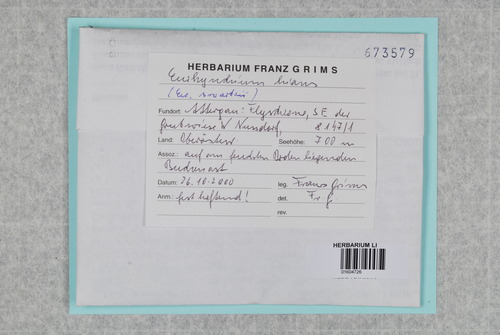 673579
HERBARIUM FRANZ GRIMS
Eurhynchium hians
(Eu. swartzii)
Fundort: Attergau: Flyschzone, SE der
W Nussdorf, 8147/1
Land: Oberösterr Seehöhe: 700 m
Assoz.: auf am feuchten Boden liegenden
Buchenast
Datum: 26.10.2000 leg. Franz Grims
Anm.: fest haftend! det. Fr. G.
rev.
HERBARIUM LI